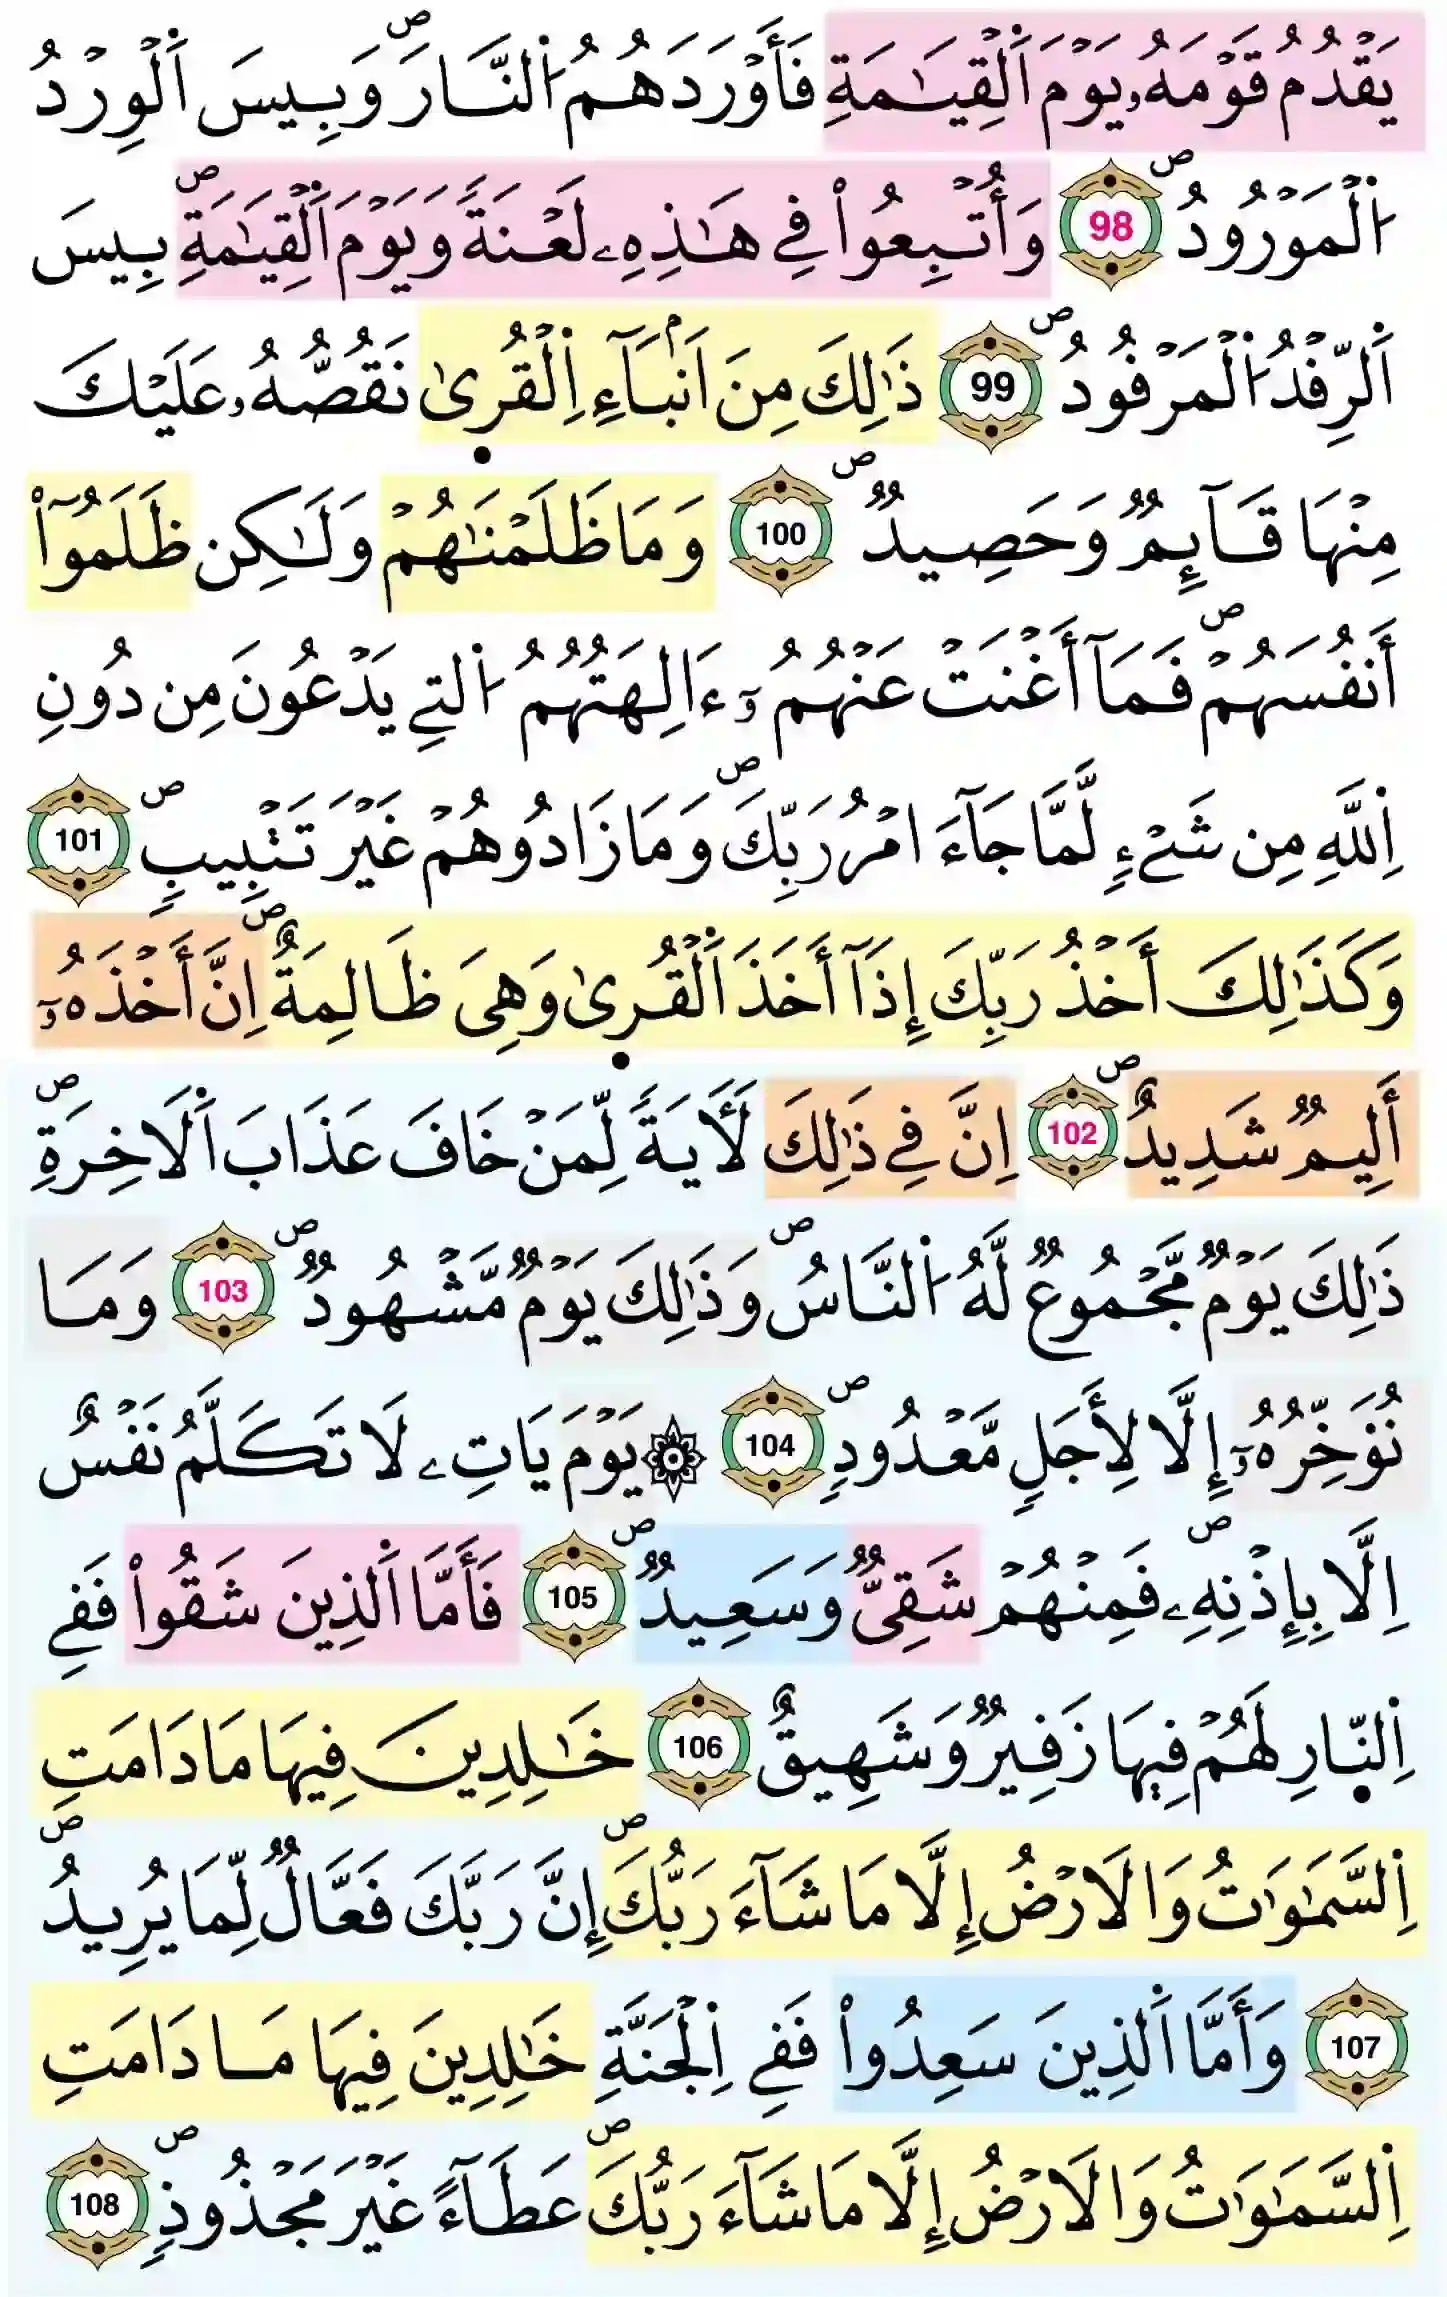 يَقْدُمُ قَوْمَهُۥ يَوْمَ اَ۬لْقِيَٰمَةِ فَأَوْرَدَهُمُ اُ۬لنَّارَۖ وَبِيسَ اَ۬لْوِرْدُ
اُ۬لْمَوْرُودُۖ 98 وَأُتْبِعُواْ فِے هَٰذِهِۦ لَعْنَةٗ وَيَوْمَ اَ۬لْقِيَٰمَةِۖ بِيسَ
اَ۬لرِّفْدُ اُ۬لْمَرْفُودُۖ 99 ذَٰلِكَ مِنَ اَنۢبَآءِ اِ۬لْقُر۪ىٰ نَقُصُّهُۥ عَلَيْكَ
مِنْهَا قَآئِمٞ وَحَصِيدٞۖ 100 وَمَا ظَلَمْنَٰهُمْ وَلَٰكِن ظَلَمُوٓاْ
أَنفُسَهُمْۖ فَمَآ أَغْنَتْ عَنْهُمُۥٓ ءَالِهَتُهُمُ اُ۬لتِے يَدْعُونَ مِن دُونِ
اِ۬للَّهِ مِن شَےْءٖ لَّمَّا جَآءَ امْرُ رَبِّكَۖ وَمَا زَادُوهُمْ غَيْرَ تَتْبِيبٖۖ 101
وَكَذَٰلِكَ أَخْذُ رَبِّكَ إِذَآ أَخَذَ اَ۬لْقُر۪ىٰ وَهِيَ ظَٰلِمَةٌۖ اِنَّ أَخْذَهُۥٓ
أَلِيمٞ شَدِيدٌۖ 102 اِنَّ فِے ذَٰلِكَ لَأٓيَةٗ لِّمَنْ خَافَ عَذَابَ اَ۬لَاخِرَةِۖ
ذَٰلِكَ يَوْمٞ مَّجْمُوعٞ لَّهُ اُ۬لنَّاسُۖ وَذَٰلِكَ يَوْمٞ مَّشْهُودٞۖ 103 وَمَا
نُؤَخِّرُهُۥٓ إِلَّا لِأَجَلٖ مَّعْدُودٖۖ 104 ۞ يَوْمَ يَاتِۦ لَا تَكَلَّمُ نَفْسٌ
اِلَّا بِإِذْنِهِۦۖ فَمِنْهُمْ شَقِيّٞ وَسَعِيدٞۖ 105 فَأَمَّا اَ۬لذِينَ شَقُواْ فَفِے
اِ۬لنّ۪ارِ لَهُمْ فِيهَا زَفِيرٞ وَشَهِيقٌ 106 خَٰلِدِينَ فِيهَا مَا دَامَتِ
اِ۬لسَّمَٰوَٰتُ وَالَارْضُ إِلَّا مَا شَآءَ رَبُّكَۖ إِنَّ رَبَّكَ فَعَّالٞ لِّمَا يُرِيدُۖ
107 وَأَمَّا اَ۬لذِينَ سَعِدُواْ فَفِے اِ۬لْجَنَّةِ خَٰلِدِينَ فِيهَا مَا دَامَتِ
اِ۬لسَّمَٰوَٰتُ وَالَارْضُ إِلَّا مَا شَآءَ رَبُّكَۖ عَطَآءً غَيْرَ مَجْذُوذٖۖ 108